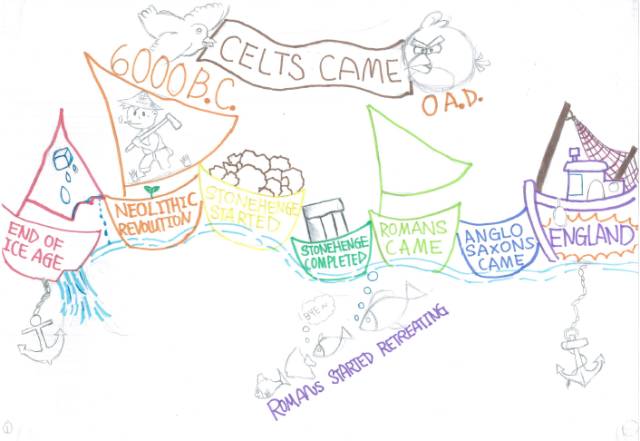 CELTS CAME
6000 B.C.
0 A.D.
END OF
ICE AGE
NEOLITHIC
REVOLUTION
STONEHENGE
STARTED
STONEHENGE
COMPLETED
ROMANS
CAME
ANGLO
SAXONS
CAME
ENGLAND
BYE~
ROMANS STARTED RETREATING